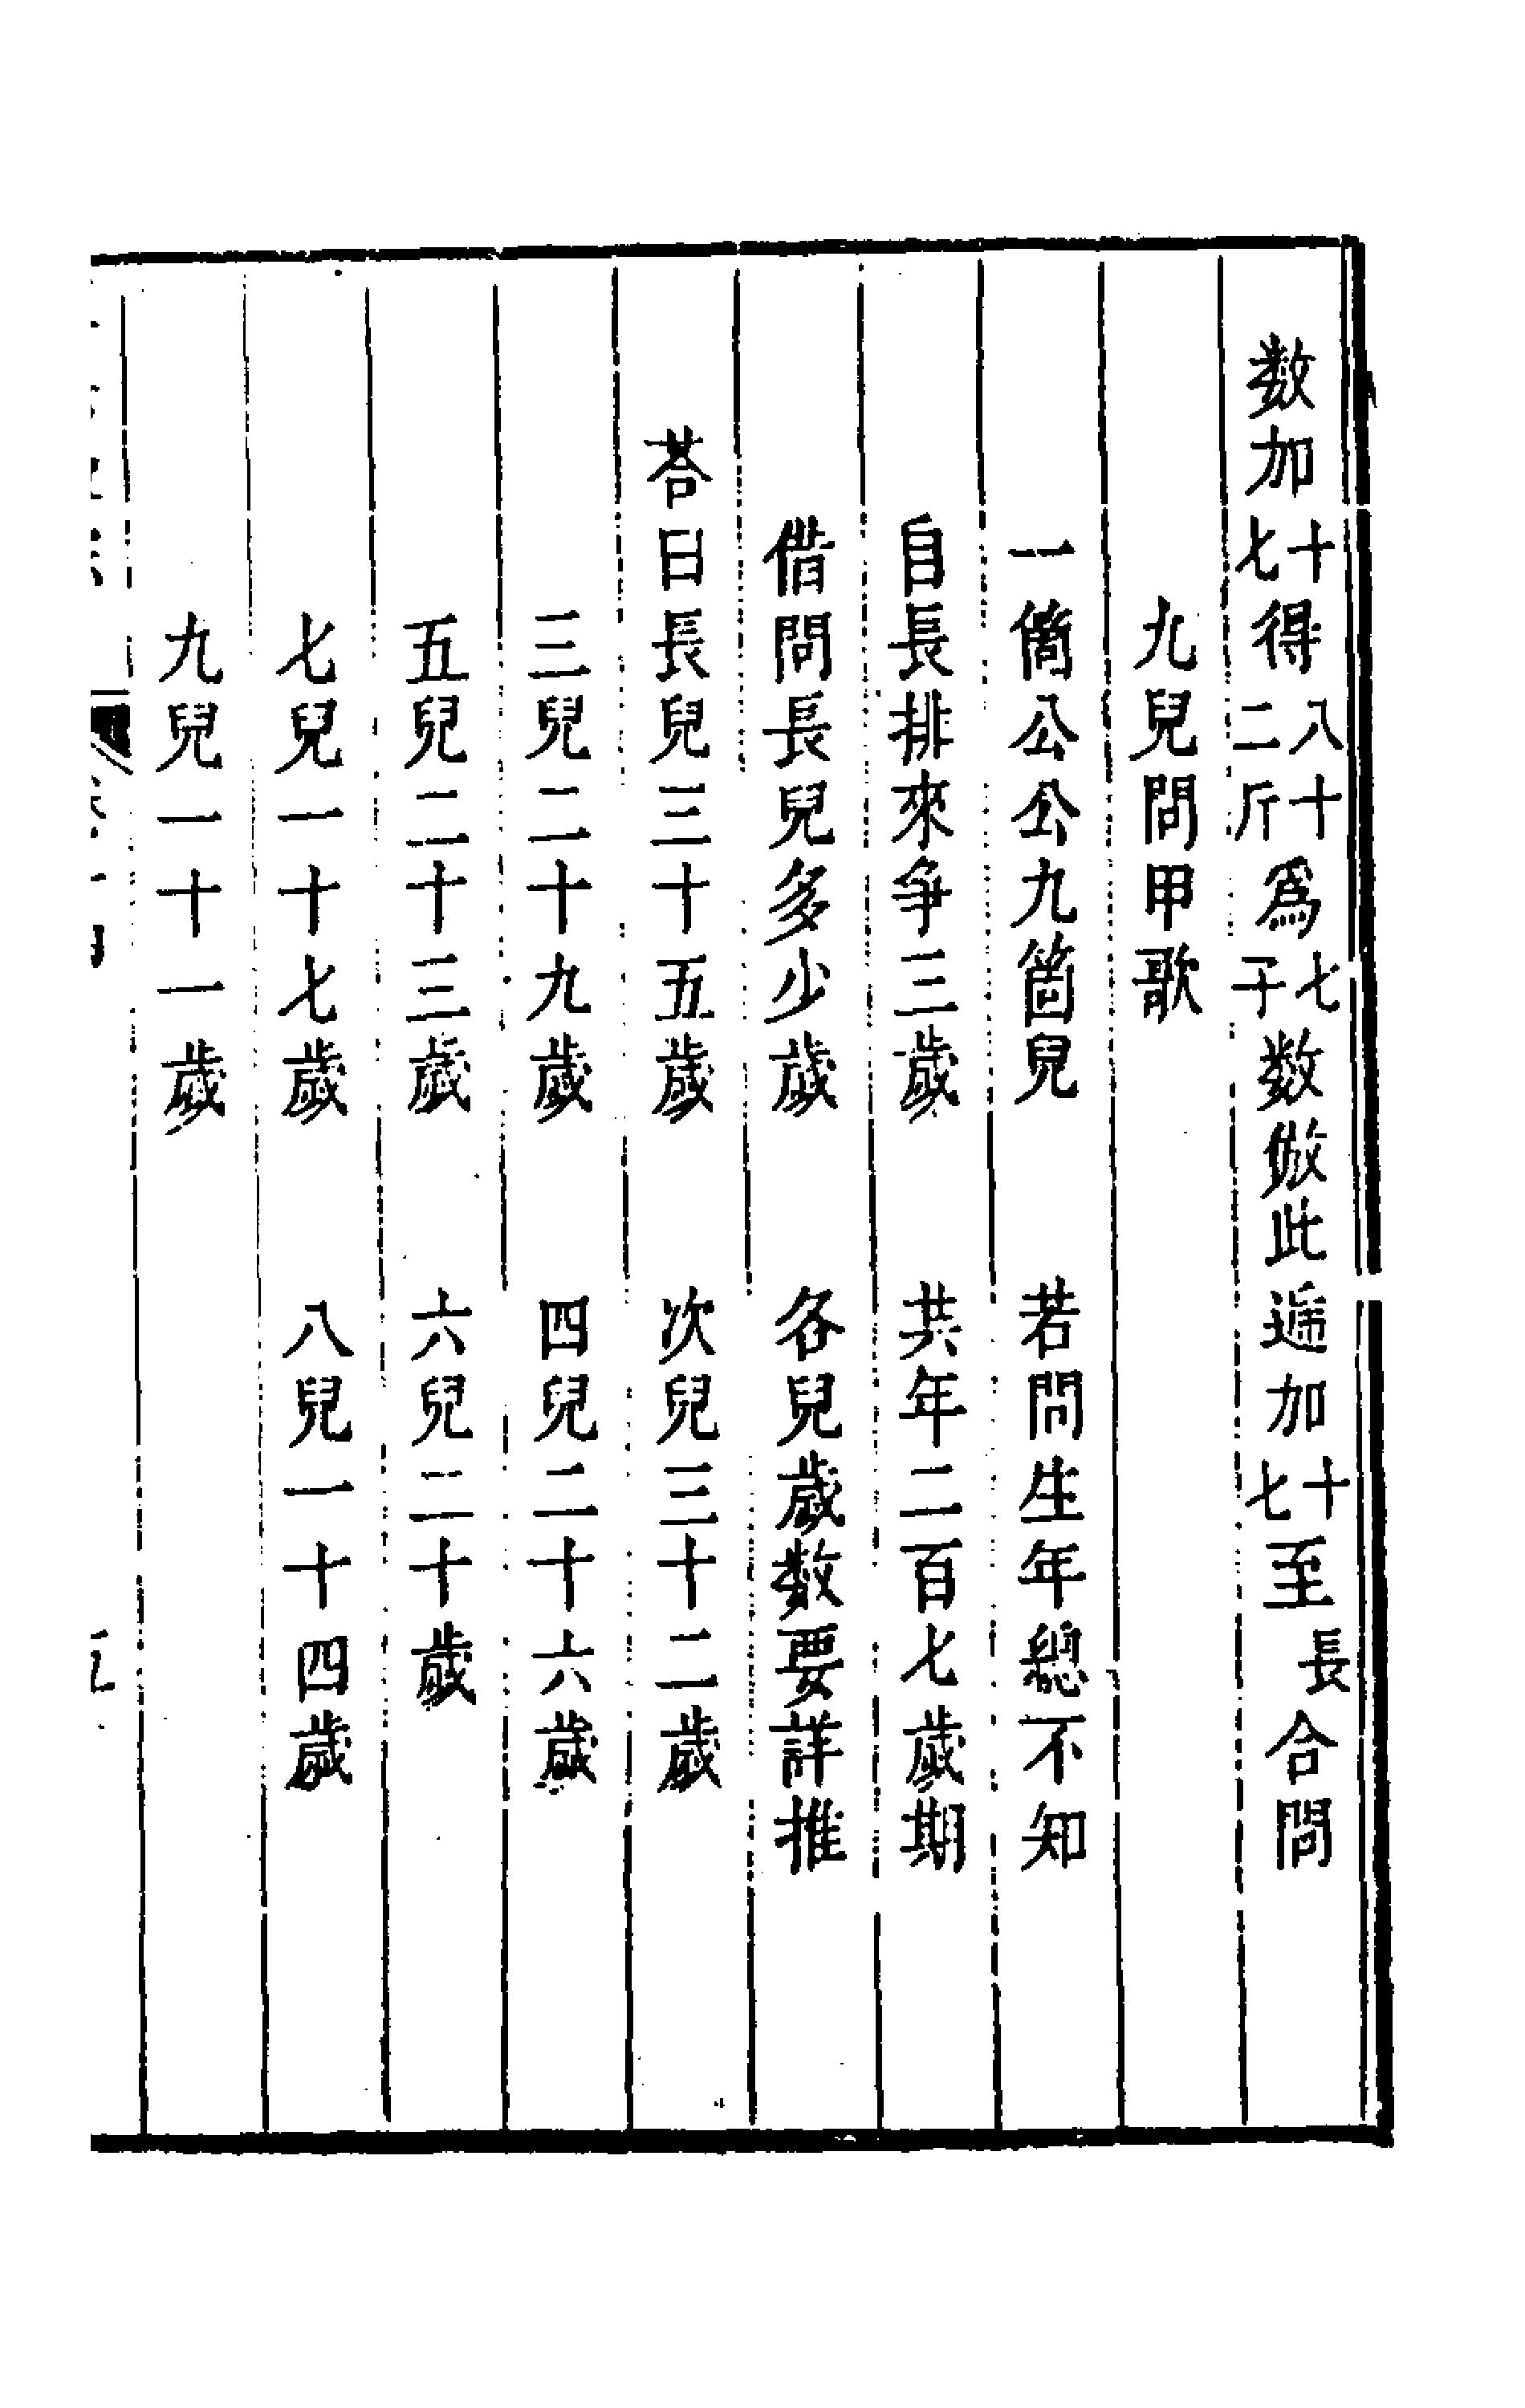 数加十七得八十二斤為七子数倣此遞加十七至長合問
九兒問甲歌
一箇公公九箇兒　若問生年緫不知
自長排來争三歲　共年二百七歲期
借問長兒多少歲　各兒歲数要詳推
荅曰長兒三十五歲　次兒三十二歲
三兒二十九歲　四兒二十六歲
五兒二十三歲　六兒二十歲
七兒一十七歲　八兒一十四歲
九兒一十一歲